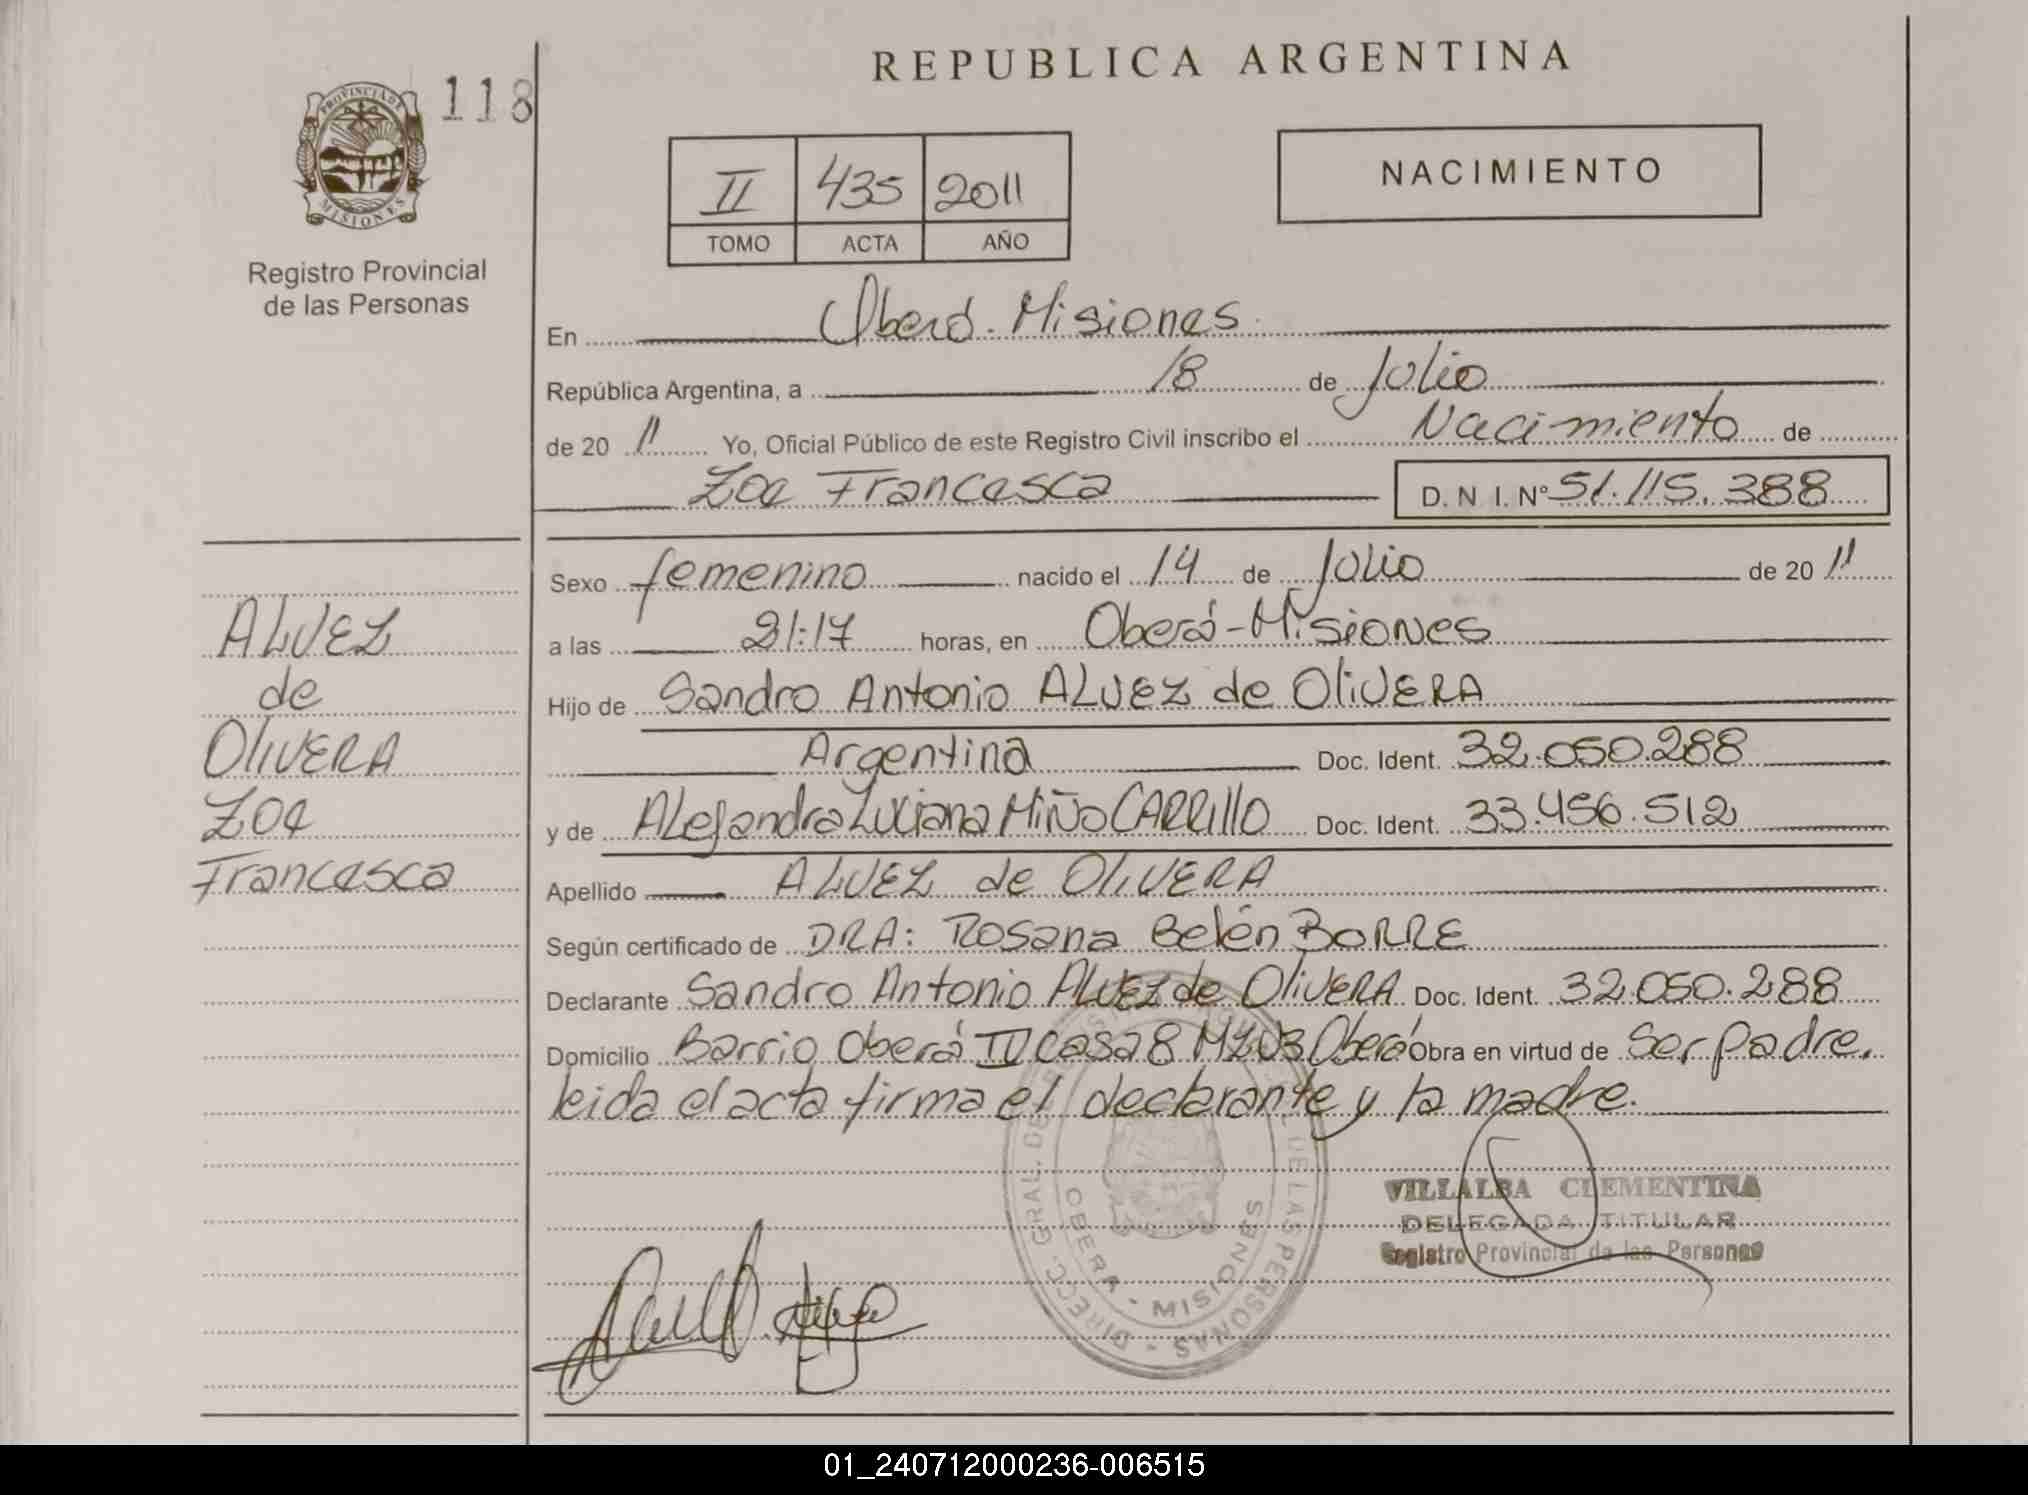 REPUBLICA ARGENTINA
PROVINCIA DE
MISIONES
118
Registro Provincial
de las Personas
II 435 2011
TOMO ACTA AÑO
NACIMIENTO
En Oberá - Misiones
República Argentina, a 18 de Julio
de 20 11 Yo, Oficial Público de este Registro Civil inscribo el Nacimiento de
Zoe Francesca D. N I. N° 51.115.388
Sexo femenino nacido el 14 de Julio de 20 11
a las 21:17 horas, en Oberá - Misiones
Hijo de Sandro Antonio ALVEZ de OliVERA
Argentina Doc. Ident. 32.050.288
y de Alejandra Luciana Miño CARRillO Doc. Ident. 33.456.512
Apellido ALVEZ de OliVERA
Según certificado de DRA: Rosana Belén BORRE
Declarante Sandro Antonio ALVEZ de OliVERA Doc. Ident. 32.050.288
Domicilio Barrio Oberá IV Casa 8 MZ 03 Oberá Obra en virtud de ser padre.
leida el acta firma el declarante y la madre.
ALVEZ
de
OliVERA
Zoe
Francesca
DIRECC. GRAL. DE DE LAS PERSONAS
OBERA - MISIONES
VILLALBA CLEMENTINA
DELEGADA TITULAR
Registro Provincial de las Personas
01_240712000236-006515